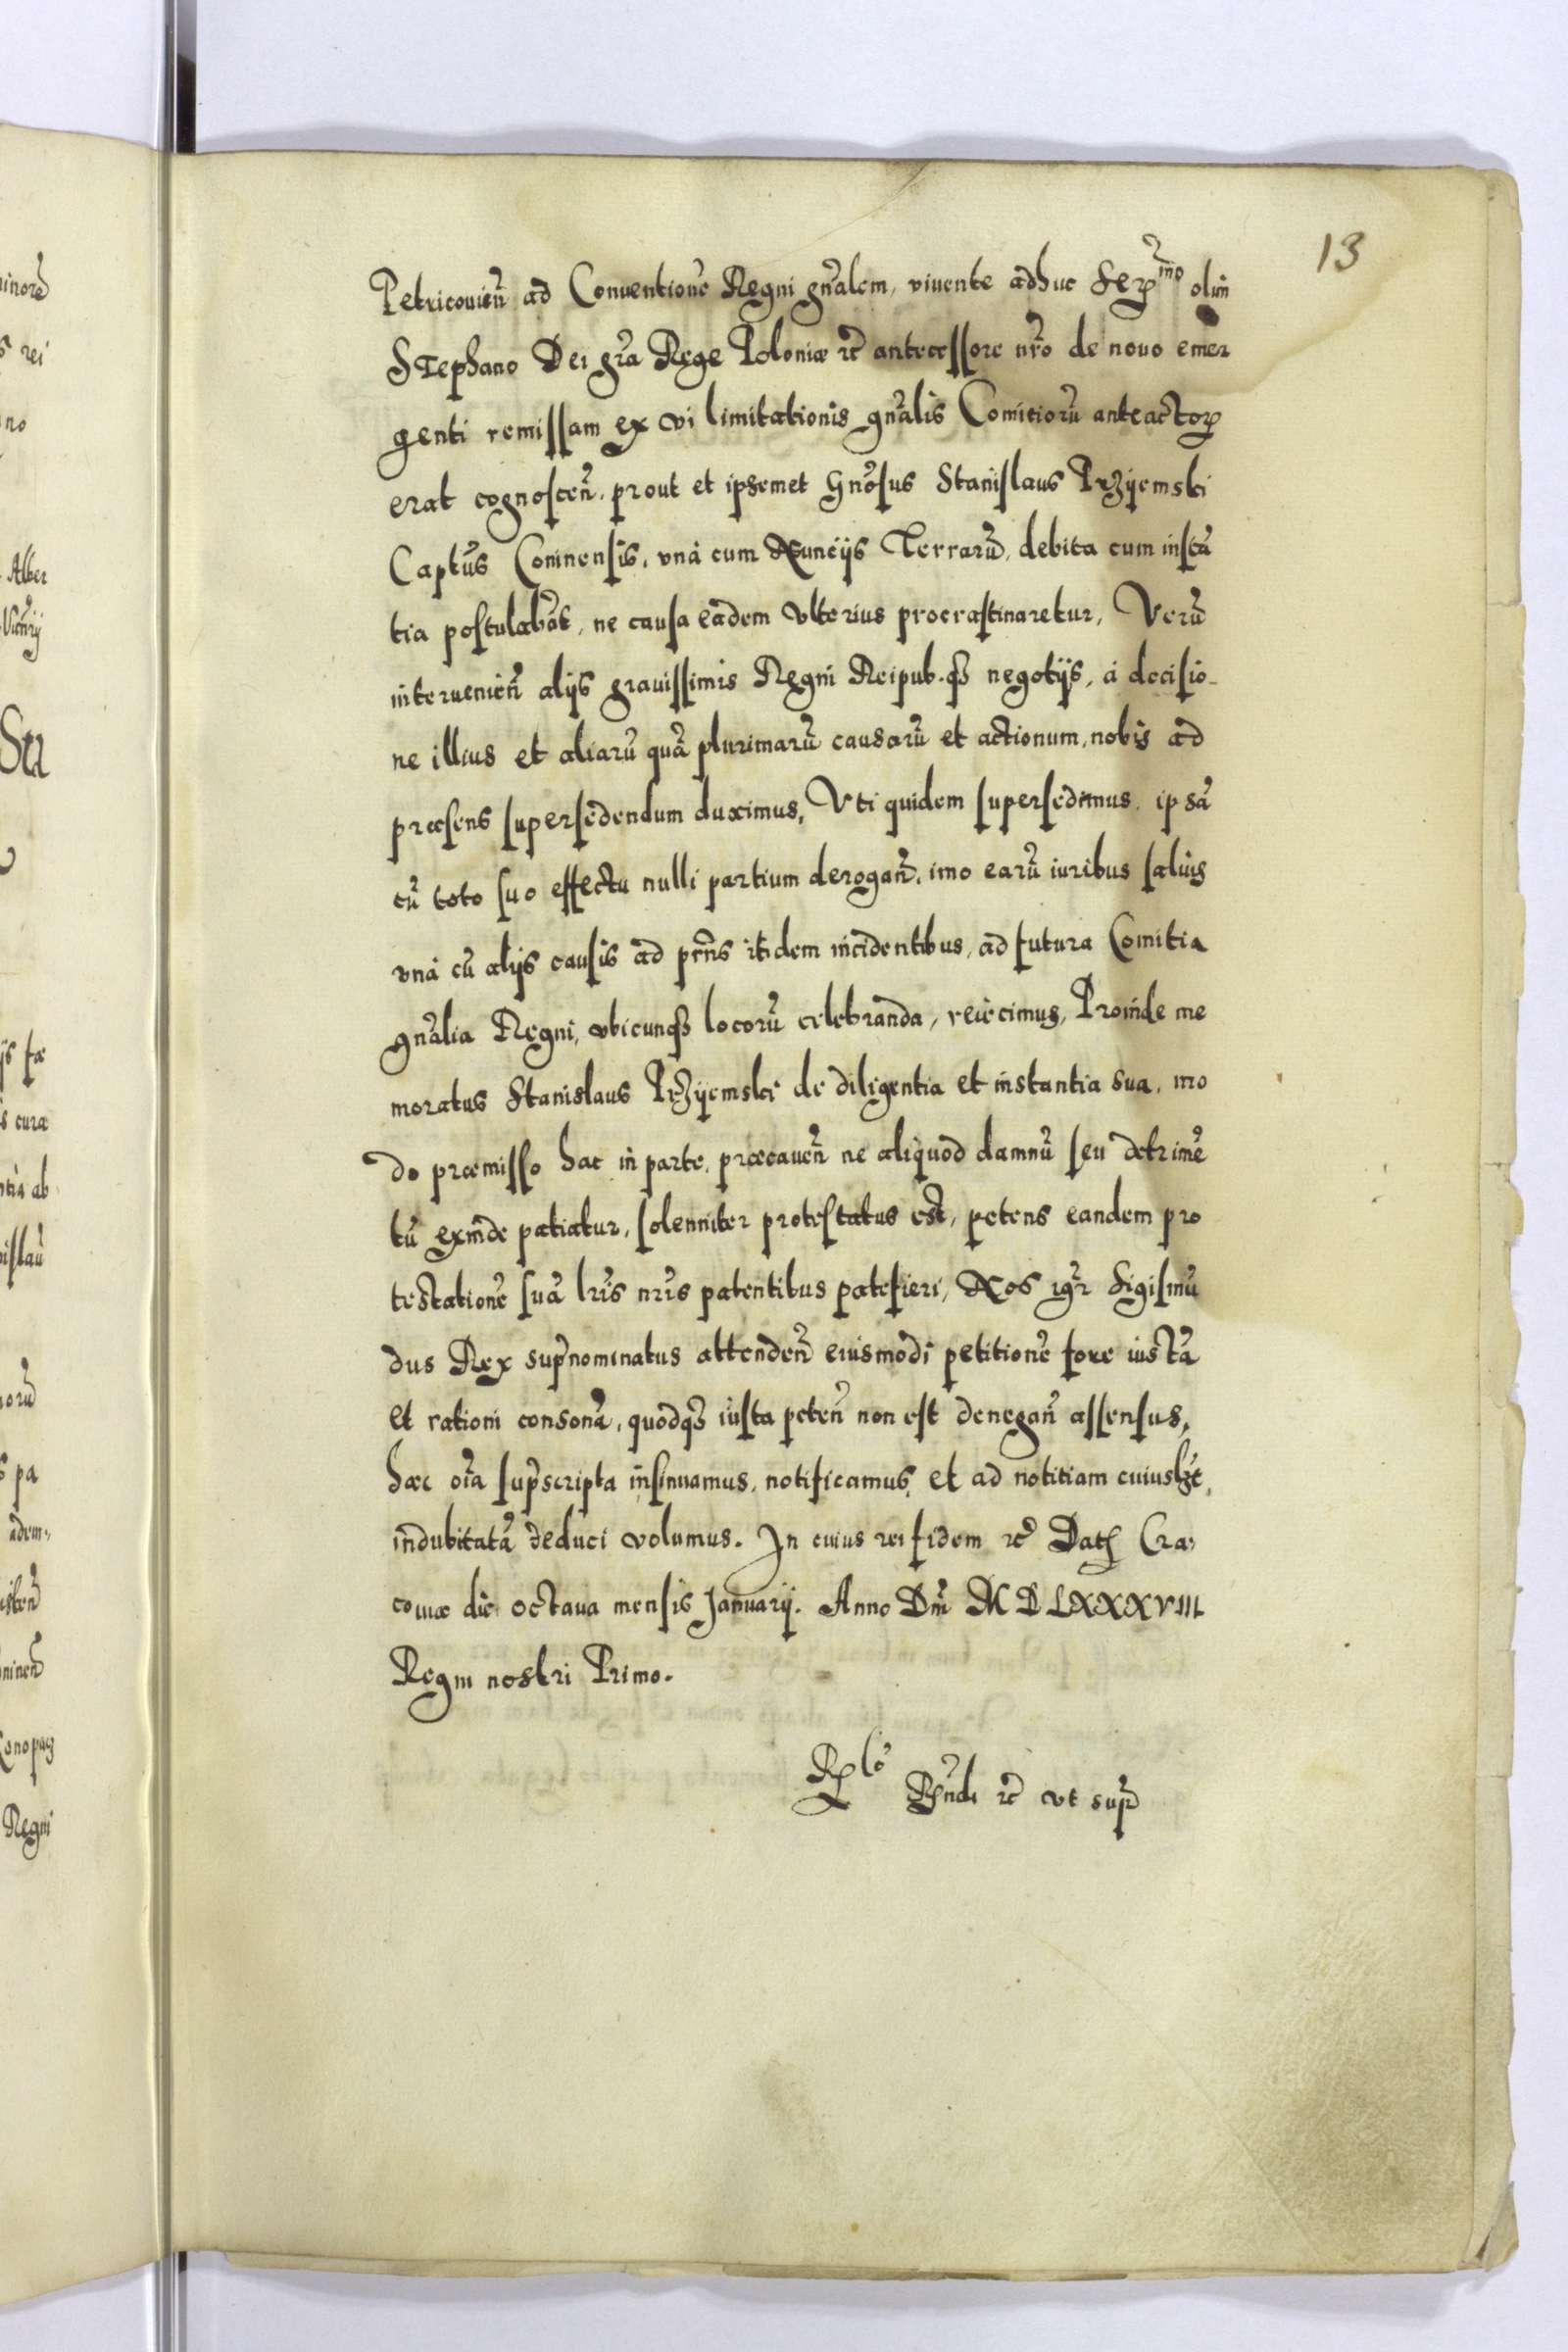 13
Petricouien̄ ad Conuentionē Regni gn̄alem, viuente adhuc Ser^mo olim
STephano Dei gr̄a Rege Poloniæ etc antecessore nr̄o de nouo emer
genti remissam ex vi limitationis gn̄alis Comitiorū anteactoꝝ
erat cognoscen̄. prout et ipsemet Gn̄osus Stanislaus Przÿemski
Captūs Coninensis, vnà cum Nuncÿs Terrarū, debita cum instā
tia postulabāt, ne causa eadem vlterius procrastinaretur, Verū
interuenien̄ alÿs grauissimis Regni Reipub.qꝫ negotÿs, à decisio-
ne illius et aliarū quā plurimarū causarū et actionum, nobis ad
præsens supersedendum duximus, Vti quidem supersedimus, ipsā
cū toto suo effectu nulli partium derogan̄, imo earū iuribus saluis
vnà cū alÿs causis ad pn̄s itidem incidentibus, ad futura Comitia
gn̄alia Regni, vbicunqꝫ locorū celebranda, reiecimus, Proinde me
moratus Stanislaus Przÿemski de diligentia et instantia sua, mo
do præmisso hac in parte, præcauen̄ ne aliquod damnū seu detrimē
tū exinde patiatur, solenniter protestatus est, petens eandem pro
testationē suā lr̄is nr̄is patentibus patefieri, Nos igr̄ Sigismū
dus Rex supr̄nominatus attenden̄ eiusmodi petitionē fore iustā
et rationi consonā, quodqꝫ iusta peten̄ non est denegan̄ assensus,
hæc oīa supr̄scripta insinuamus, notificamus, et ad notitiam cuiuslꝫt,
indubitatā deduci volumus. In cuius rei fidem etc Datꝭ Cra,
couiæ die octaua mensis Januarÿ. Anno Dn̄i M D LXXXVIII
Regni nostri Primo.
R^lo Rn̄di etc vt supr̄